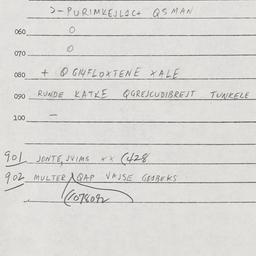 >-PURIMKEJLOC+ QSMAN
060 O
070 O
080 + QG14FLOXTENE XALE
090 RUNDE KATKE QGREJCUDIBREJT TUNKELE
100 —
901 JONTE,JVIMS xx (428
902 MULTER QAP VAJSE